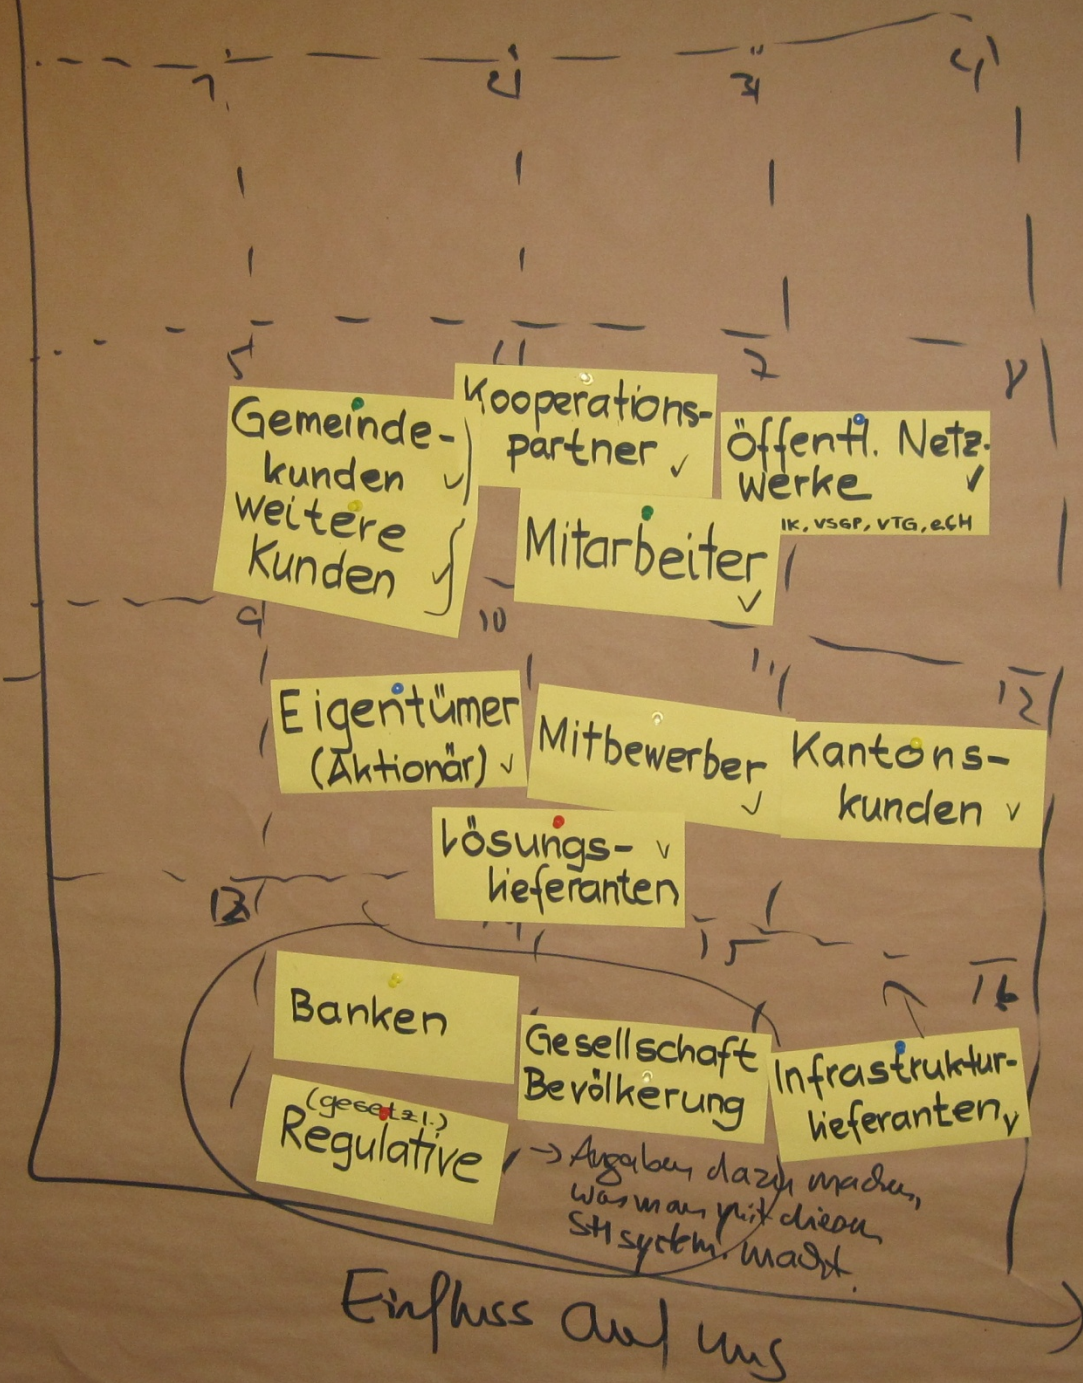 1 2 3 4
5 6 7 8
Gemeinde-
kunden ✓
weitere
Kunden ✓
Kooperations-
partner ✓
Öffentl. Netz-
werke ✓
IK, VSGP, VTG, eCH
Mitarbeiter
✓
9 10 11 12
Eigentümer
(Aktionär) ✓
Mitbewerber
✓
Kantons-
kunden ✓
Lösungs- ✓
lieferanten
13 14 15 16
Banken
(gesetzl.)
Regulative
Gesellschaft
Bevölkerung
Infrastruktur-
lieferanten ✓
→ Angaben dazu machen,
was man mit diesen
SH system. macht.
Einfluss auf uns